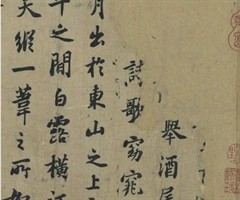 舉酒
詩歌窈窕
月出於東山之上
之間白露橫江
天縱一葦之所